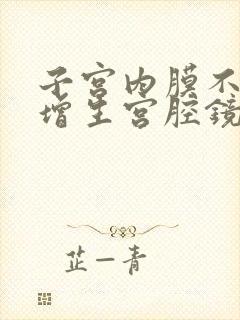 子宫内膜不
增生宫腔镜
芷一青